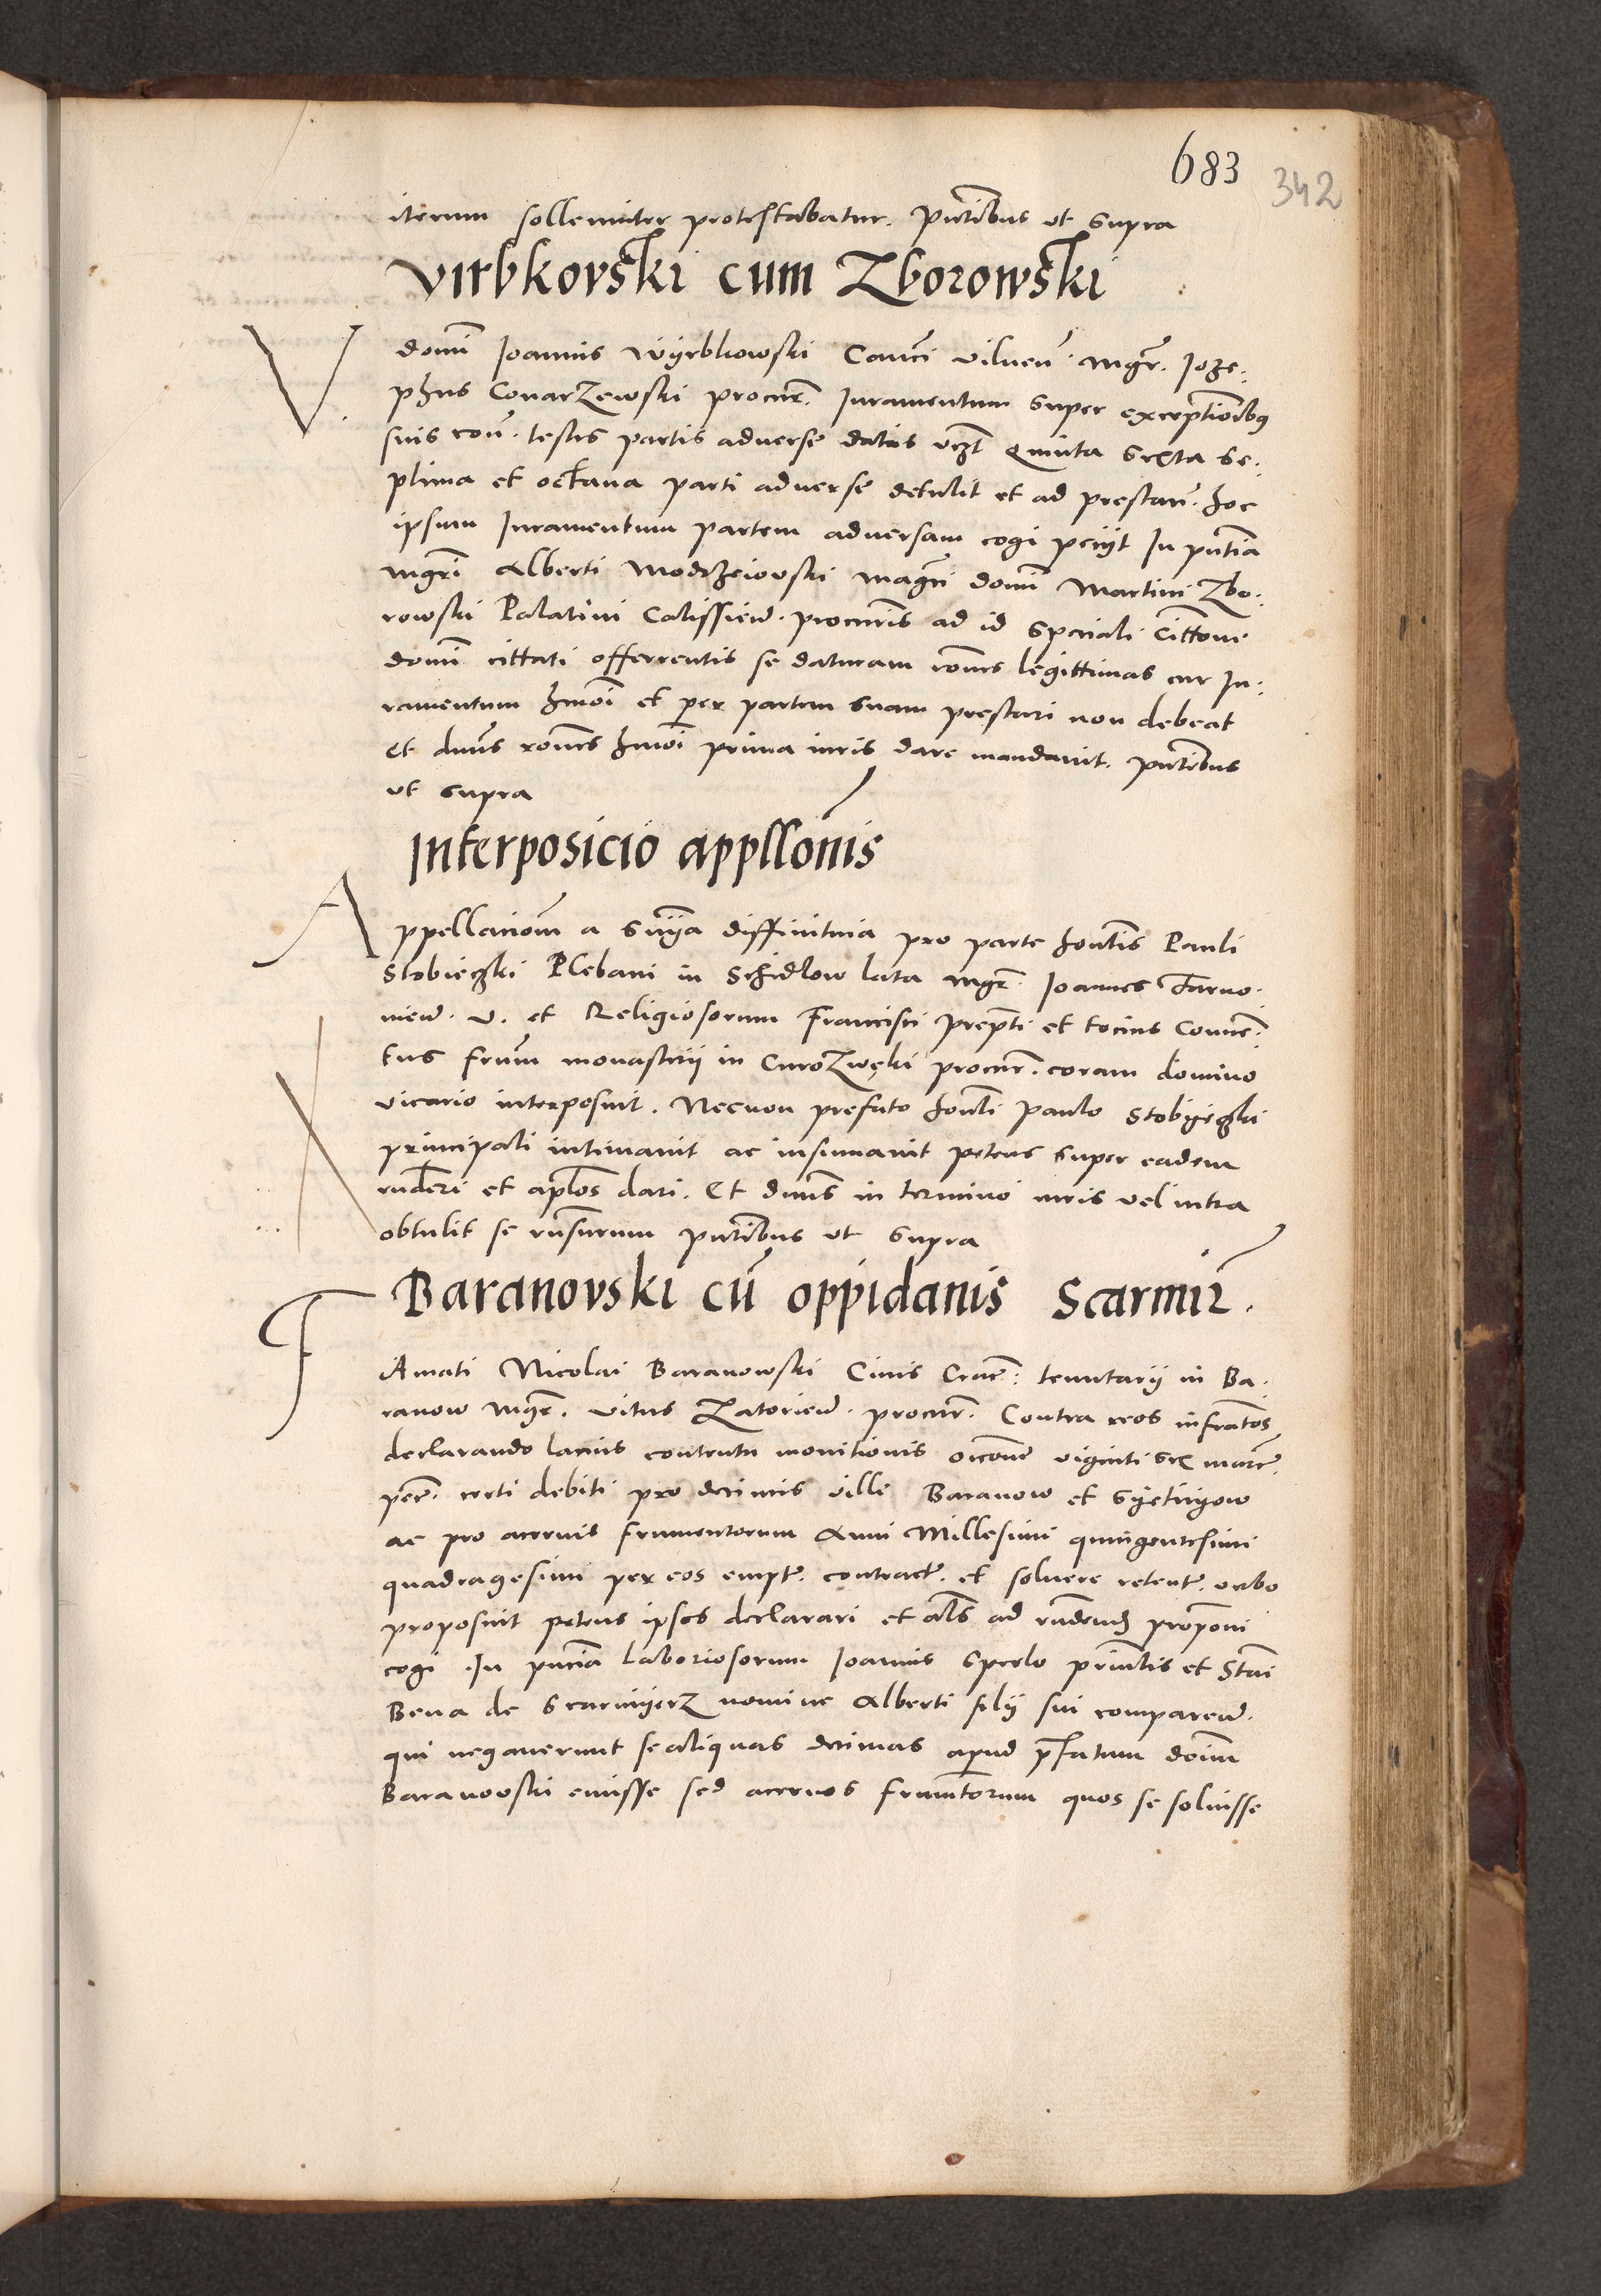 683 342
iterum sollemniter protestabatur. pntibus ut supra
Virbkovski cum Zborowski
V. domi Joannis Wyrbkowski Canci vilnen. mgr. Joze:
phus Conarzewski procur. Juramentum super exceptioibus
suis con. testes partis adverse datis vzt Quinta sexta se:
ptima et octava parti adverse detulit et ad prestan. hoc
ipsum Juramentum partem adversam cogi peciit In pntia
mgri Alberti Modrzeiovski magci domi Martini Zbo:
rowski Palatini Calissien. procuris ad id speciali Cittone
domi cittati offerrentis se daturam rones legittimas cur Ju:
ramentum hmoi et per partem suam prestari non debeat
et dnus rones hmoi prima iuris dare mandavit. pntibus
ut supra
Interposicio appllonis
A ppellacionem a snia diffinitiva pro parte honlis Pauli
Stobieczki Plebani in Schidlow lata mgr. Joannes Tarno.
vien. v. et Religiosorum Francisci prepti et tocius Conuen:
tus frum monasterii in Curozwęki procur. coram domino
vicario interposuit. Necnon prefato honli paulo Stobyeczki
principali intimavit ac insinuavit petens super eadem
rnderi et aplos dari. Et dnus in termino iuris vel intra
obtulit se rnsurum pntibus ut supra
Baranovski cu oppidanis Scarmir.
F Amati Nicolai Baranowski Civis Crac: tenutarii in Ba.
ranow mgr. Vitus Zatorien. procur. Contra reos infratos
declarando lacius contenta monitionis occone viginti sex marc.
pec. certi debiti pro decimis ville Baranow et Syetinyow
ac pro acervis frumentorum Anni Millesimi quingentesimi
quadragesimi per eos empt. contract. et soluere retent. verbo
proposuit petens ipsos declarari et als ad rndend proponi
cogi In pncia laboriosorum Joannis Speclo princlis et Stani
Bena de Scarmyerz nomine Alberti filii sui comparen.
qui negauerunt se aliquas decimas apud pfatum doim
Baranovski emisse sed acervos frumtorum quos se soluisse